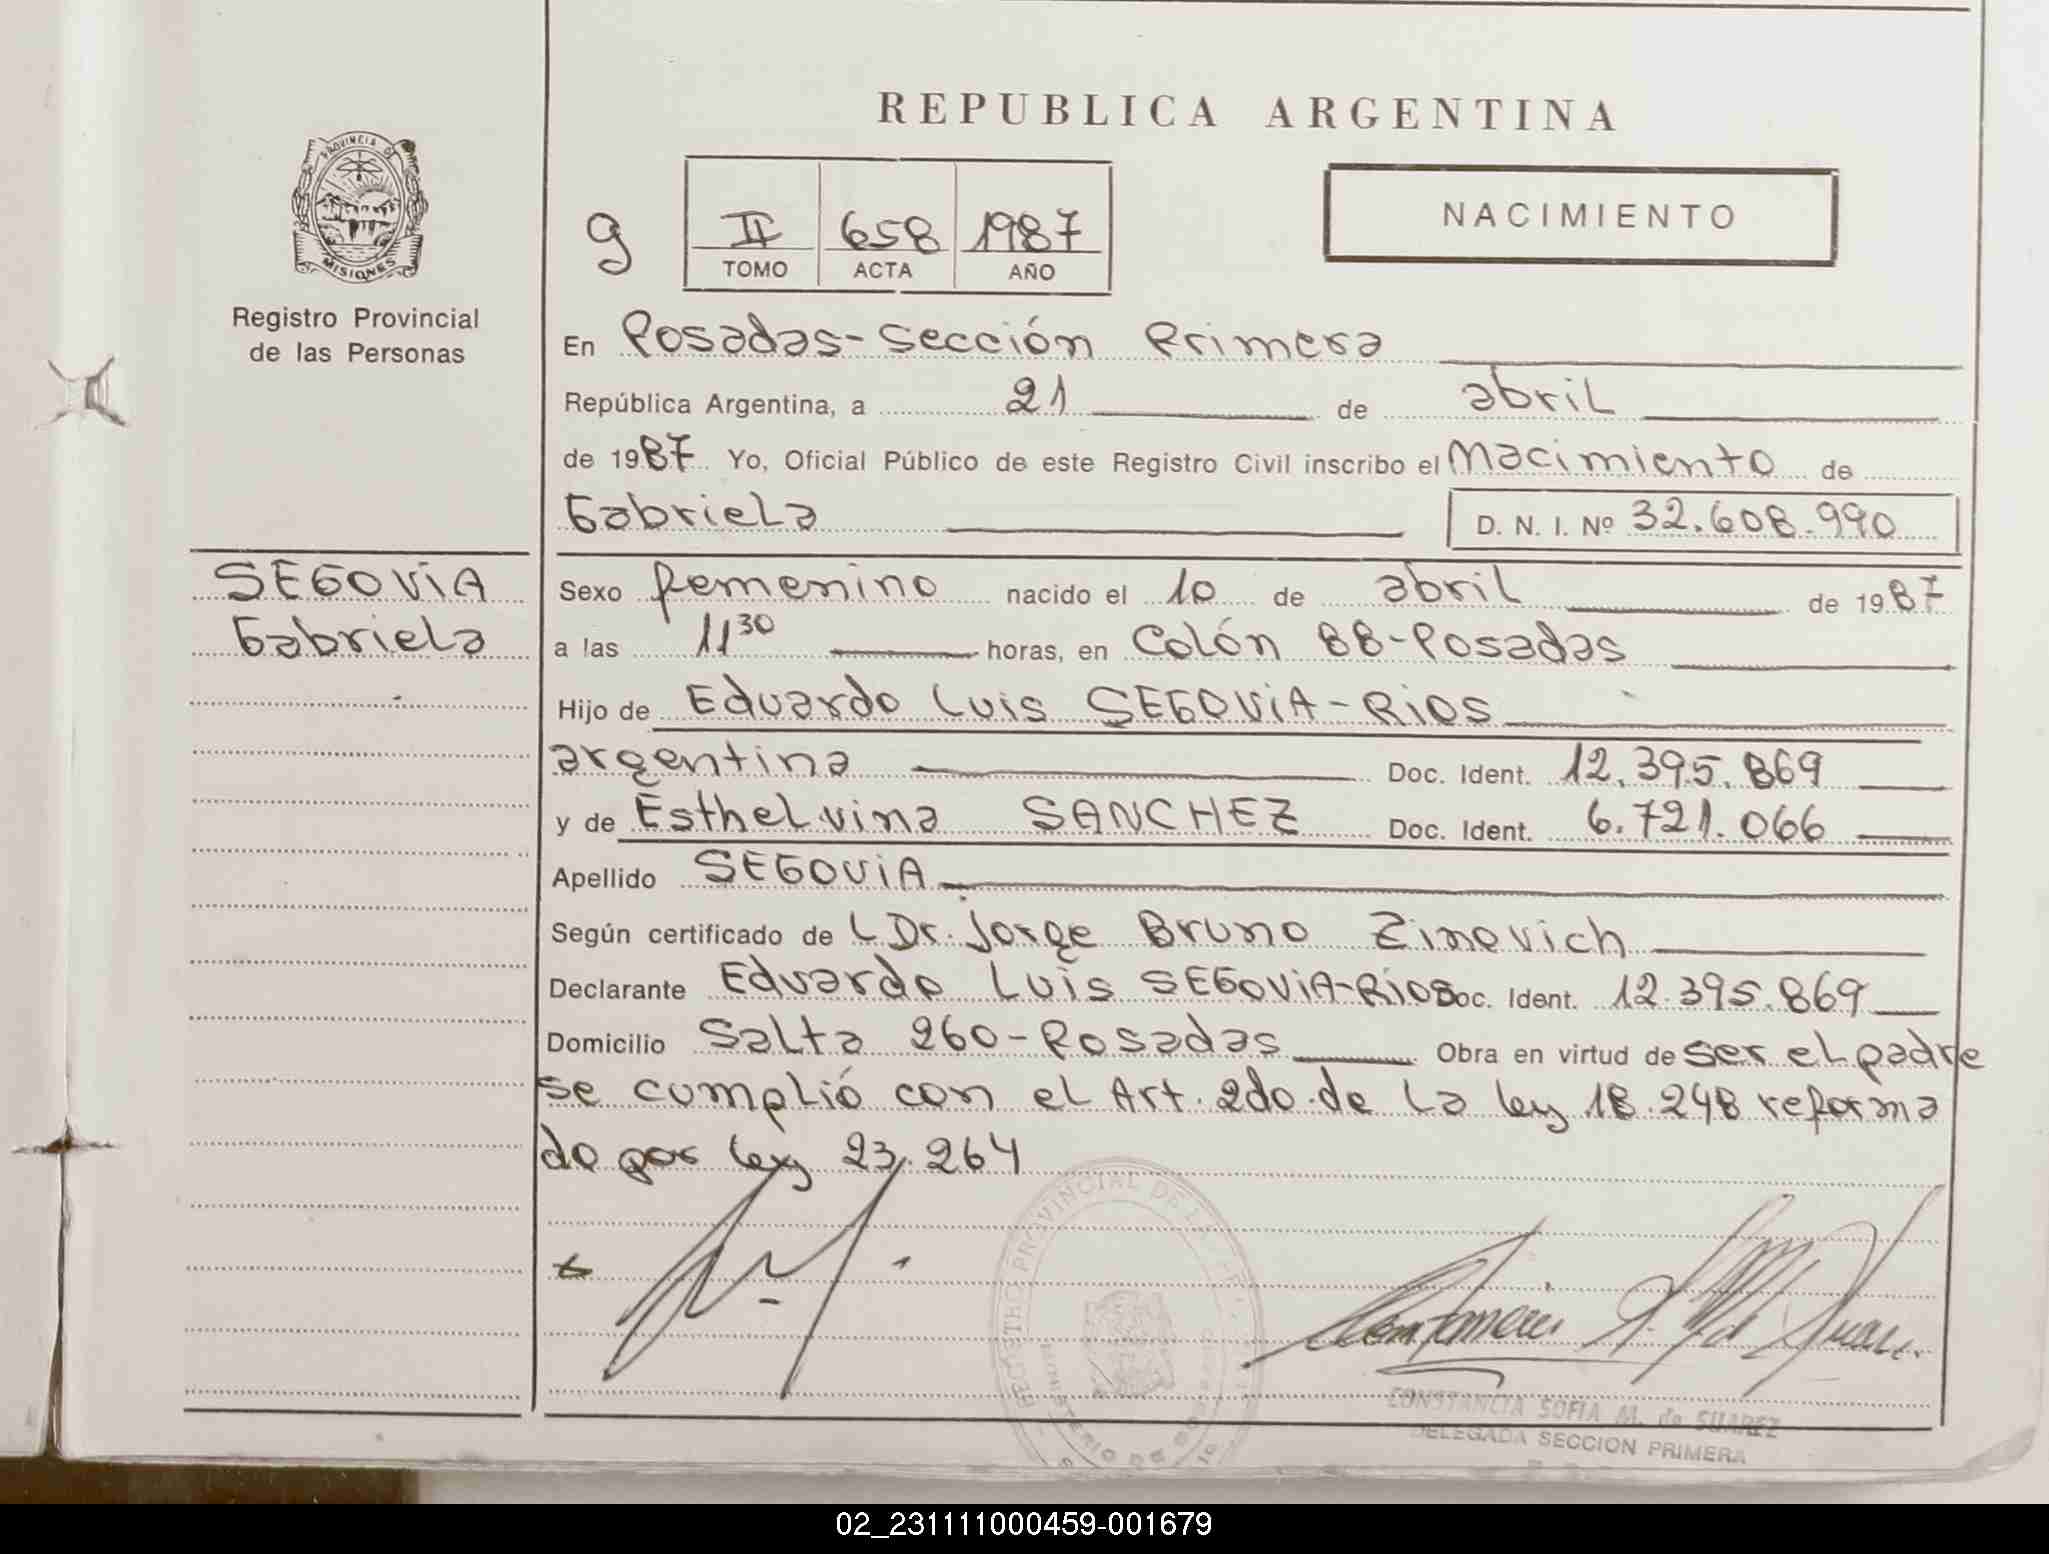 REPUBLICA ARGENTINA
PROVINCIA DE
MISIONES
Registro Provincial
de las Personas
g
II 658 1987
TOMO ACTA AÑO
NACIMIENTO
En Posadas-Sección Primera
República Argentina, a 21 de abril
de 1987 Yo, Oficial Público de este Registro Civil inscribo el Nacimiento de
Gabriela D. N. I. Nº 32.608.990
SEGOVIA
Gabriela
Sexo femenino nacido el 10 de abril de 1987
a las 11 30 horas, en Colón 88-Posadas
Hijo de Eduardo Luis SEGOVIA-Rios
argentina Doc. Ident. 12.395.869
y de Esthelvina SANCHEZ Doc. Ident. 6.721.066
Apellido SEGOVIA
Según certificado de L Dr. Jorge Bruno Zinovich
Declarante Eduardo Luis SEGOVIA-Rios Doc. Ident. 12.395.869
Domicilio Salta 260-Posadas Obra en virtud de ser el padre
se cumplió con el Art. 2do. de la ley 18.248 reforma
do por ley 23.264
REGISTRO PROVINCIAL DE
MINISTERIO DE
CONSTANCIA SOFIA M. de SUAREZ
DELEGADA SECCION PRIMERA
02_231111000459-001679